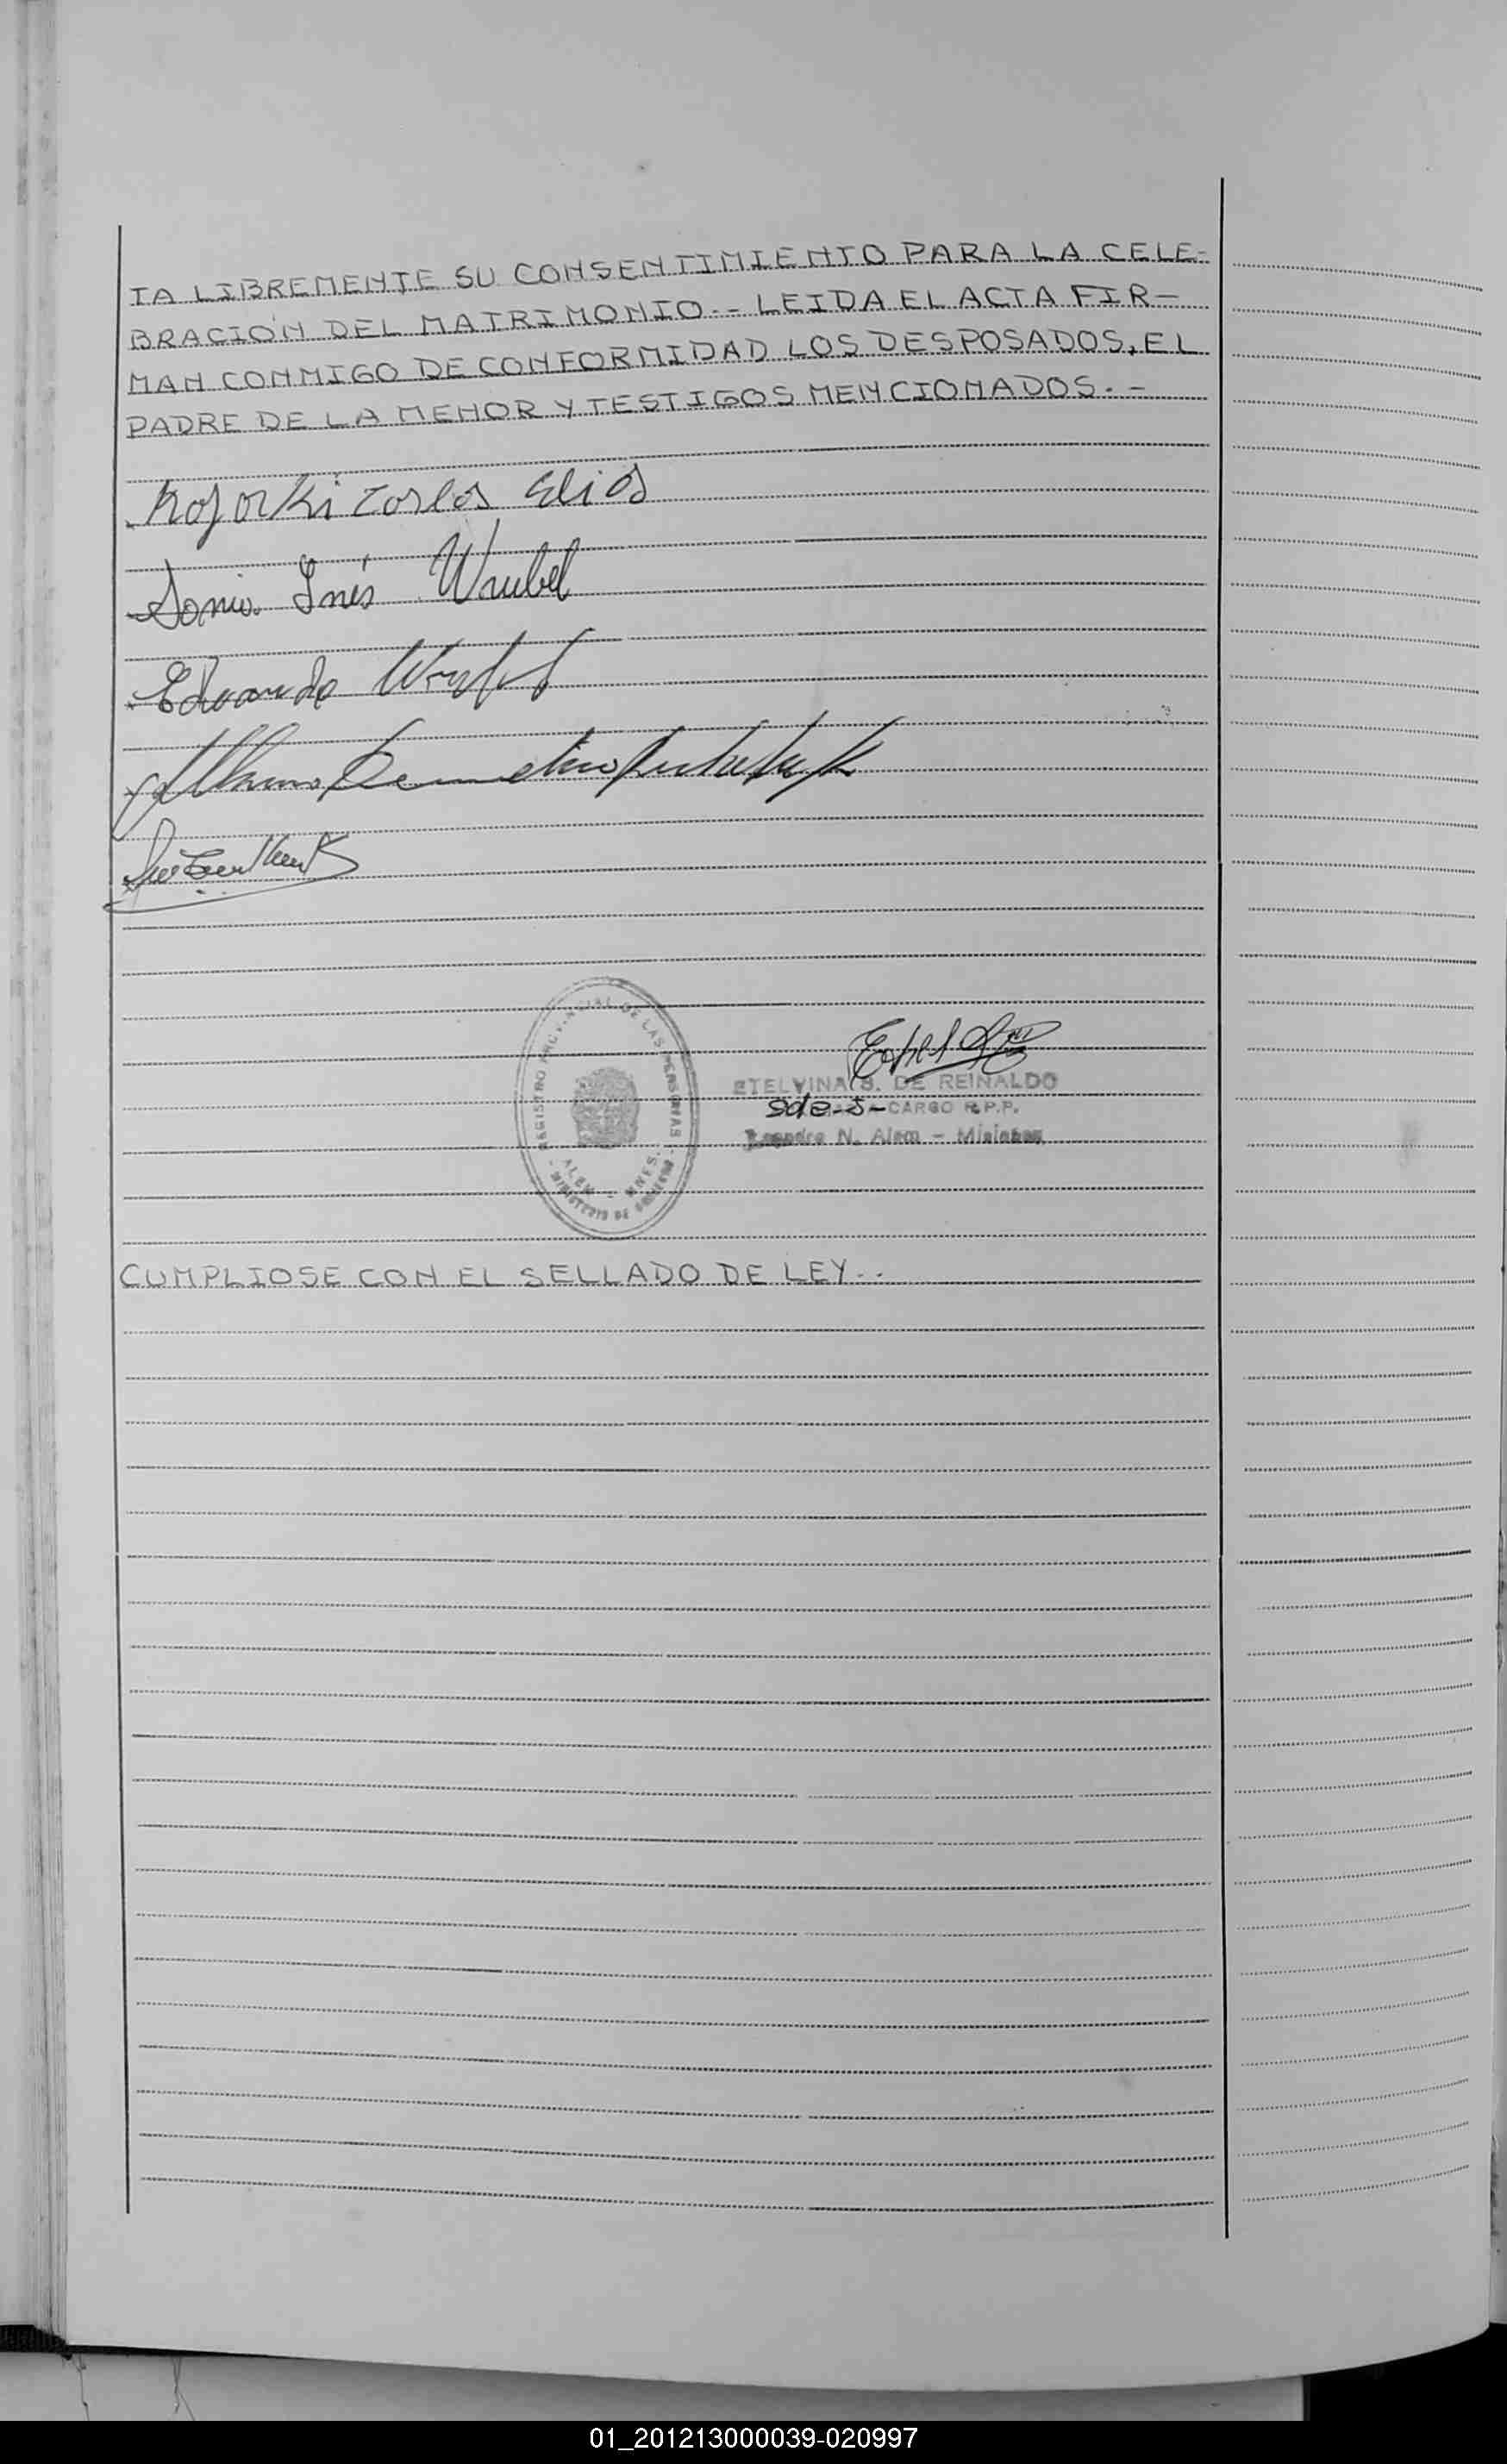 TA LIBREMENTE SU CONSENTIMIENTO PARA LA CELE-
BRACIÓN DEL MATRIMONIO.- LEIDA EL ACTA FIR-
MAN CONMIGO DE CONFORMIDAD LOS DESPOSADOS, EL
PADRE DE LA MENOR Y TESTIGOS MENCIONADOS.-
Carlos Elias
Sonia Inés Wrubel
Eduardo
REGISTRO PROVINCIAL DE LAS PERSONAS
ALEM - MNES.
MINISTERIO DE GOBIERNO
ETELVINA S. DE REINALDO
CARGO R.P.P.
Leandro N. Alem - Misiones
CUMPLIOSE CON EL SELLADO DE LEY..
01_201213000039-020997